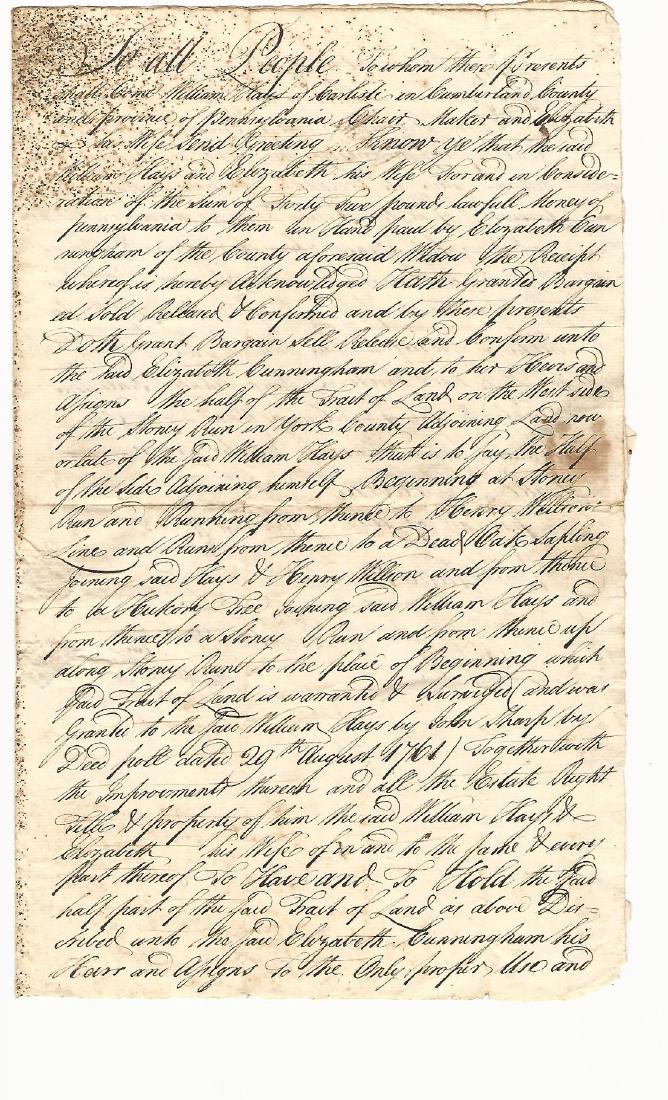 To all People To whom these Presents
shall Come William Hays of Carlisle in Cumberland County
and province of Pennsylvania Chair Maker and Elizabeth
his Wife Send Greeting Know ye that the said
William Hays and Elizabeth his Wife For and in Conside-
ration of the Sum of Forty five pounds lawfull Money of
Pennsylvania to them in Hand paid by Elizabeth Cun
ningham of the County aforesaid Widow the Receipt
whereof is hereby Acknowledged Hath Granted Bargain
ed Sold Released & Confirmed and by these presents
Doth Grant Bargain Sell Release and Confirm unto
the Said Elizabeth Cunningham and to her Heirs and
Assigns the half of the Tract of Land on the West side
of the Stoney Run in York County Adjoining Land now
or late of the said William Hays that is to say the Half
of the Side Adjoining himself Beginning at Stoney
Run and Running from thence to Henry Willson's
Line and Runs from thence to a Dead Oak Sapling
Joining said Hays & Henry Willson and from thence
to a Hickory Tree Joining said William Hays and
from thence to a Stoney Run and from thence up
along Stoney Run to the place of Beginning which
Said Tract of Land is warranted & Surveyed and was
Granted to the said William Hays by John Sharp by
Deed poll dated 29th August 1761) Together with
the Improvements thereon and all the Estate Right
Title & property of him the said William Hays &
Elizabeth his Wife of in and to the same & every
part thereof To Have and To Hold the Said
half part of the said Tract of Land as above Des=
cribed unto the said Elizabeth Cunningham his
Heirs and Assigns To the Only proper Use and